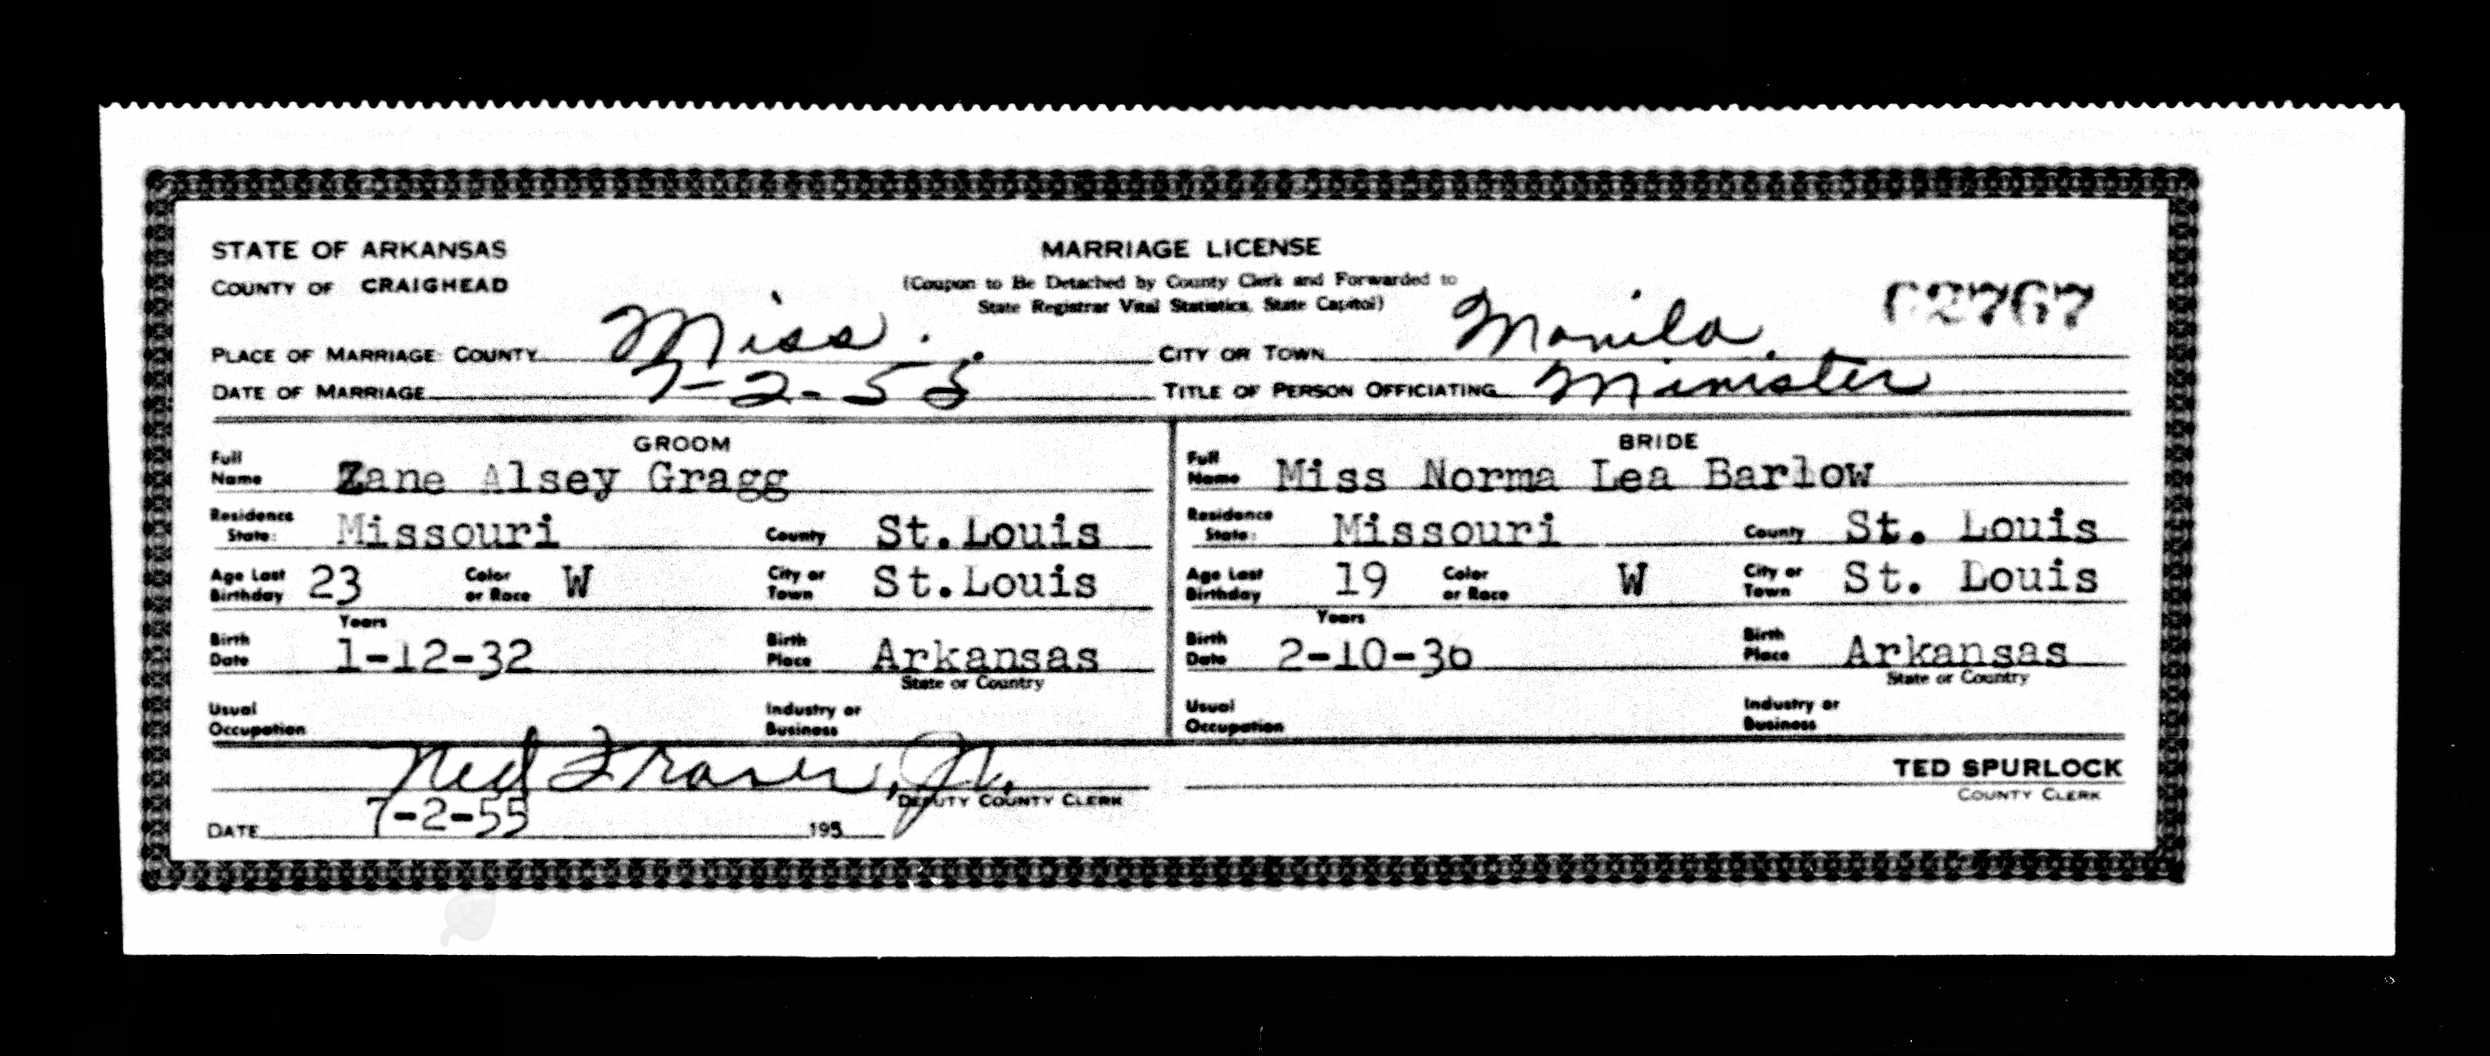 STATE OF ARKANSAS MARRIAGE LICENSE
COUNTY OF CRAIGHEAD (Coupon to Be Detached by County Clerk and Forwarded to
State Registrar Vital Statistics, State Capitol) 02767
PLACE OF MARRIAGE: COUNTY Miss. CITY OR TOWN Manila
DATE OF MARRIAGE 7-2-55 TITLE OF PERSON OFFICIATING Minister
GROOM BRIDE
Full Name Zane Alsey Gragg Full Name Miss Norma Lea Barlow
Residence State: Missouri County St.Louis Residence State: Missouri County St. Louis
Age Last Birthday 23 Color or Race W City or Town St.Louis Age Last Birthday 19 Color or Race W City or Town St. Louis
Years Years
Birth Date 1-12-32 Birth Place Arkansas Birth Date 2-10-36 Birth Place Arkansas
State or Country State or Country
Usual Occupation Industry or Business Usual Occupation Industry or Business
Ned Fraser, Jr. TED SPURLOCK
DEPUTY COUNTY CLERK COUNTY CLERK
DATE 7-2-55 195